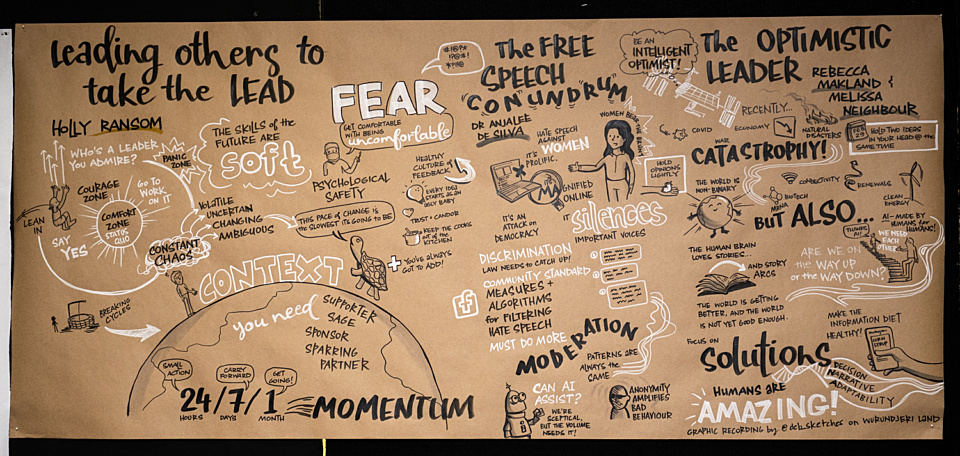 Leading others to
take the LEAD
HOLLY RANSOM
WHO'S A LEADER
YOU ADMIRE?
PANIC
ZONE
COURAGE
ZONE
GO &
WORK
ON IT
COMFORT
ZONE
STATUS
QUO
LEAN
IN
SAY
YES
BREAKING
CYCLES
THE SKILLS of the
FUTURE ARE
soft
VOLATILE
UNCERTAIN
CHANGING
AMBIGUOUS
CONSTANT
CHAOS
FEAR
GET COMFORTABLE
WITH BEING
uncomfortable
PSYCHOLOGICAL
SAFETY
HEALTHY
CULTURE of
FEEDBACK
EVERY IDEA
STARTS AS AN
UGLY BABY
TRUST + CANDOR
KEEP THE COOKS
OUT OF THE
KITCHEN
THIS PACE of CHANGE is
the SLOWEST IT'S GOING to BE
+ YOU'VE ALWAYS
GOT TO ADD!
CONTEXT
you need
SUPPORTER
SAGE
SPONSOR
SPARRING
PARTNER
SMALL
ACTION
CARRY
FORWARD
GET
GOING!
24/7/1
HOURS DAYS MONTH
MOMENTUM
The FREE
SPEECH
"CONUNDRUM"
DR ANJALEE
DE SILVA
HATE SPEECH
AGAINST
WOMEN
WOMEN BEAR THE BRUNT
IT'S
PROLIFIC.
MAGNIFIED
ONLINE
HOLD
OPINIONS
LIGHTLY
IT'S AN
ATTACK on
DEMOCRACY
IT
silences
IMPORTANT VOICES
DISCRIMINATION
LAW NEEDS to CATCH UP!
COMMUNITY STANDARD
MEASURES +
ALGORITHMS
for FILTERING
HATE SPEECH
MUST DO MORE
MODERATION
PATTERNS ARE
ALWAYS the
SAME
CAN AI
ASSIST?
WE'RE
SCEPTICAL,
BUT THE VOLUME
NEEDS IT!
ANONYMITY
AMPLIFIES
BAD
BEHAVIOUR
BE AN
INTELLIGENT
OPTIMIST!
The OPTIMISTIC
LEADER
REBECCA
MAKLAND &
MELISSA
NEIGHBOUR
RECENTLY...
COVID
ECONOMY
NATURAL
DISASTERS
WAR
CATASTROPHY!
HOLD TWO IDEAS
in YOUR HEAD @ the
SAME TIME
THE WORLD IS
NON-BINARY
CONNECTIVITY
BIOTECH
MRNA
RENEWABLE
CLEAN
ENERGY
BUT ALSO...
AI - MADE BY
HUMANS for
HUMANS!
THANKS,
AI
WE NEED
EACH
OTHER
THE HUMAN BRAIN
LOVES STORIES...
AND STORY
ARCS
ARE WE ON
the WAY UP
or the WAY DOWN?
THE WORLD IS GETTING
BETTER, AND THE WORLD
IS NOT YET GOOD ENOUGH.
MAKE THE
INFORMATION DIET
HEALTHY!
FOCUS ON
solutions
DECISION
NARRATIVE
ADAPTABILITY
HUMANS ARE
AMAZING!
GRAPHIC RECORDING by @deb_sketches on WURUNDJERI LAND